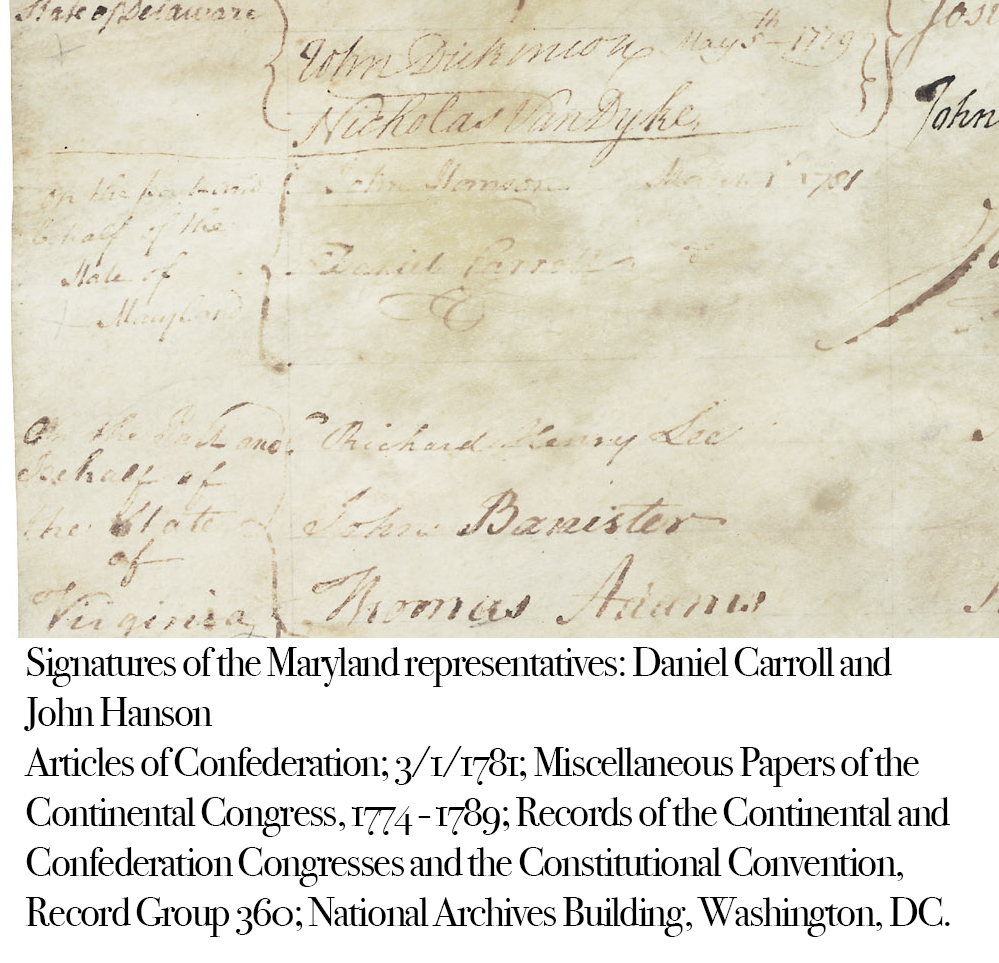 State of Delaware
John Dickinson May 5th – 1779
Nicholas VanDyke,
John
on the part and
behalf of the
State of
Maryland
John Hanson March 1st 1781
Daniel Carroll do
On the Part and
Behalf of
the State
of
Virginia
Richard Henry Lee
John Banister
Thomas Adams
Signatures of the Maryland representatives: Daniel Carroll and
John Hanson
Articles of Confederation; 3/1/1781; Miscellaneous Papers of the
Continental Congress, 1774 - 1789; Records of the Continental and
Confederation Congresses and the Constitutional Convention,
Record Group 360; National Archives Building, Washington, DC.